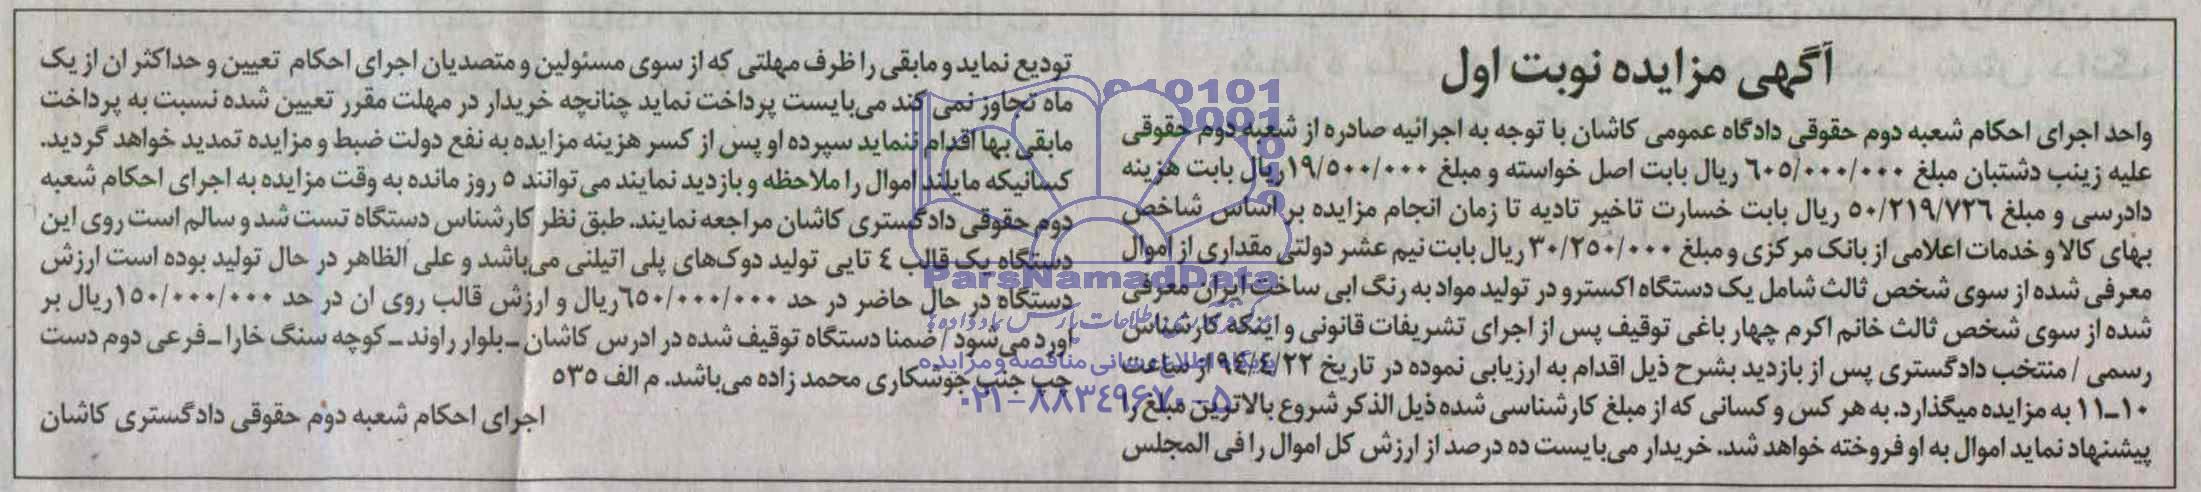 آگهی مزایده نوبت اول
واحد اجرای احکام شعبه دوم حقوقی دادگاه عمومی کاشان با توجه به اجرائیه صادره از شعبه دوم حقوقی
علیه زینب دشتبان مبلغ ٦٠٥/٠٠٠/٠٠٠ ریال بابت اصل خواسته و مبلغ ١٩/٥٠٠/٠٠٠ریال بابت هزینه
دادرسی و مبلغ ٥٠/٢١٩/٧٢٦ ریال بابت خسارت تاخیر تادیه تا زمان انجام مزایده بر اساس شاخص
بهای کالا و خدمات اعلامی از بانک مرکزی و مبلغ ٣٠/٢٥٠/٠٠٠ ریال بابت نیم عشر دولتی مقداری از اموال
معرفی شده از سوی شخص ثالث شامل یک دستگاه اکسترو در تولید مواد به رنگ ابی ساخت ایران معرفی
شده از سوی شخص ثالث خانم اکرم چهار باغی توقیف پس از اجرای تشریفات قانونی و اینکه کارشناس
رسمی / منتخب دادگستری پس از بازدید بشرح ذیل اقدام به ارزیابی نموده در تاریخ ٩٤/٤/٢٢ از ساعت
١٠ـ١١ به مزایده میگذارد. به هر کس و کسانی که از مبلغ کارشناسی شده ذیل الذکر شروع بالاترین مبلغ را
پیشنهاد نماید اموال به او فروخته خواهد شد. خریدار می‌بایست ده درصد از ارزش کل اموال را فی المجلس
تودیع نماید و مابقی را ظرف مهلتی که از سوی مسئولین و متصدیان اجرای احکام تعیین و حداکثر ان از یک
ماه تجاوز نمی کند می‌بایست پرداخت نماید چنانچه خریدار در مهلت مقرر تعیین شده نسبت به پرداخت
مابقی بها اقدام ننماید سپرده او پس از کسر هزینه مزایده به نفع دولت ضبط و مزایده تمدید خواهد گردید.
کسانیکه مایلند اموال را ملاحظه و بازدید نمایند می‌توانند ٥ روز مانده به وقت مزایده به اجرای احکام شعبه
دوم حقوقی دادگستری کاشان مراجعه نمایند. طبق نظر کارشناس دستگاه تست شد و سالم است روی این
دستگاه یک قالب ٤ تایی تولید دوک‌های پلی اتیلنی می‌باشد و علی الظاهر در حال تولید بوده است ارزش
دستگاه در حال حاضر در حد ٦٥٠/٠٠٠/٠٠٠ریال و ارزش قالب روی ان در حد ١٥٠/٠٠٠/٠٠٠ریال بر
آورد می‌شود / ضمنا دستگاه توقیف شده در ادرس کاشان ـ بلوار راوند ـ کوچه سنگ خارا ـ فرعی دوم دست
چپ جنب جوشکاری محمد زاده می‌باشد. م الف ٥٣٥
اجرای احکام شعبه دوم حقوقی دادگستری کاشان
ParsNamadData
پایگاه اطلاع رسانی مناقصه و مزایده
٠٢١-٨٨٣٤٩٦٧٠-٥